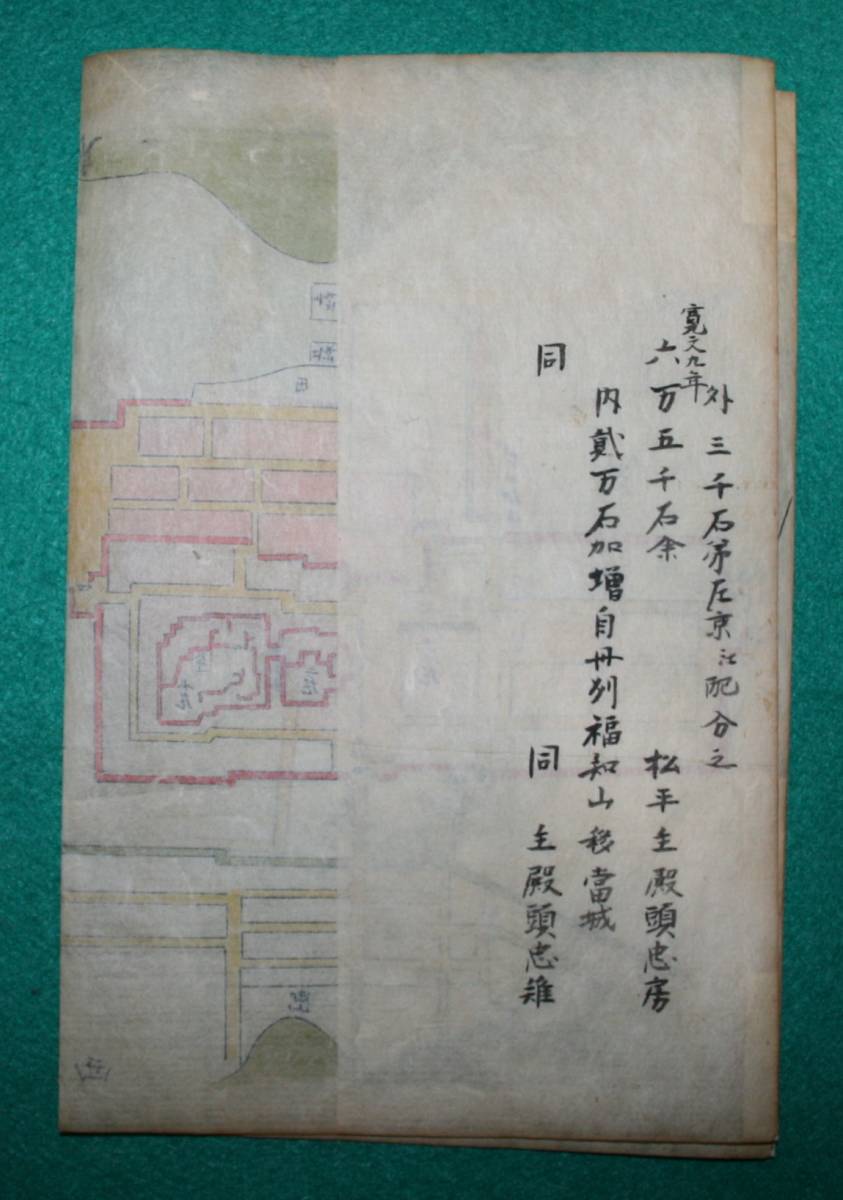 外三千石弟左京江配分之
寛文九年
六万五千石余 松平主殿頭忠房
内貳万石加増自丹列福知山移當城
同 同 主殿頭忠雄
二丸
本丸